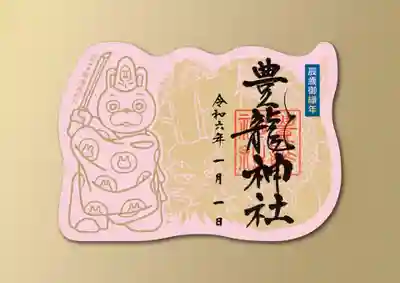 辰歳御縁年
豊龍神社
令和六年 一月 一日